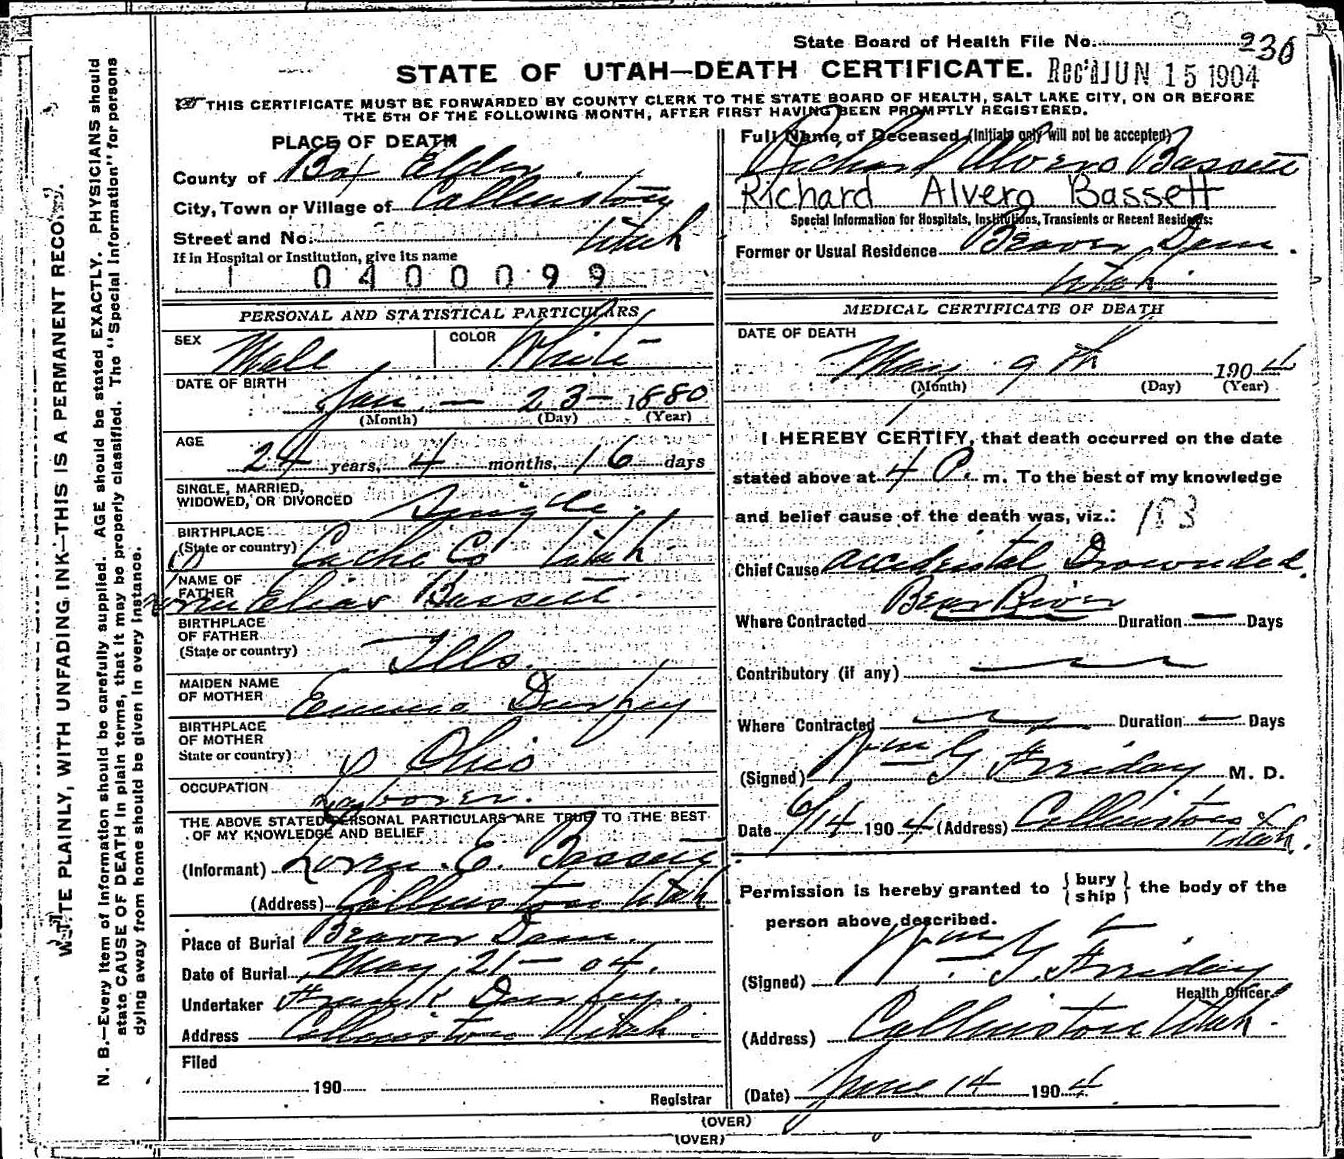 State Board of Health File No. 236
STATE OF UTAH—DEATH CERTIFICATE. Rec'd JUN 15 1904
THIS CERTIFICATE MUST BE FORWARDED BY COUNTY CLERK TO THE STATE BOARD OF HEALTH, SALT LAKE CITY, ON OR BEFORE
THE 5TH OF THE FOLLOWING MONTH, AFTER FIRST HAVING BEEN PROMPTLY REGISTERED.
PLACE OF DEATH
County of Box Elder
City, Town or Village of Collinston
Street and No. Utah
If in Hospital or Institution, give its name
0400099
PERSONAL AND STATISTICAL PARTICULARS
SEX Male COLOR White
DATE OF BIRTH
Jan. — 23 — 1880
(Month) (Day) (Year)
AGE
24 years, 4 months, 16 days
SINGLE, MARRIED,
WIDOWED, OR DIVORCED Single.
BIRTHPLACE
(State or country) Cache Co Utah
NAME OF
FATHER Elias Bassett
BIRTHPLACE
OF FATHER
(State or country) Ills.
MAIDEN NAME
OF MOTHER Emma Durfey
BIRTHPLACE
OF MOTHER
State or country) Ohio
OCCUPATION
Laborer.
THE ABOVE STATED PERSONAL PARTICULARS ARE TRUE TO THE BEST
OF MY KNOWLEDGE AND BELIEF
(Informant) Loren. E. Bassett
(Address) Collinston Utah
Place of Burial Beaver Dam.
Date of Burial May, 21 — 04.
Undertaker Frank Durfey.
Address Collinston Utah.
Filed
190
Registrar
Full Name of Deceased (Initials only will not be accepted)
Richard Alvero Bassett
Richard Alvero Bassett
Special Information for Hospitals, Institutions, Transients or Recent Residents:
Former or Usual Residence Beaver Dam.
Utah.
MEDICAL CERTIFICATE OF DEATH
DATE OF DEATH
May 9th 1904
(Month) (Day) (Year)
I HEREBY CERTIFY, that death occurred on the date
stated above at 4 P. m. To the best of my knowledge
and belief cause of the death was, viz.: 183
Chief Cause accidental Drownded.
Bear River
Where Contracted Duration — Days
Contributory (if any)
Where Contracted Duration — Days
(Signed) Wm G Friday M. D.
Date 6/14 1904 (Address) Collinston
Utah.
Permission is hereby granted to { bury ship } the body of the
person above described.
(Signed) Wm G. Friday
Health Officer.
(Address) Collinston Utah.
(Date) June 14 1904
(OVER)
(OVER)
WRITE PLAINLY, WITH UNFADING INK—THIS IS A PERMANENT RECORD.
N. B.—Every item of information should be carefully supplied. AGE should be stated EXACTLY. PHYSICIANS should
state CAUSE OF DEATH in plain terms, that it may be properly classified. The "Special Information" for persons
dying away from home should be given in every instance.